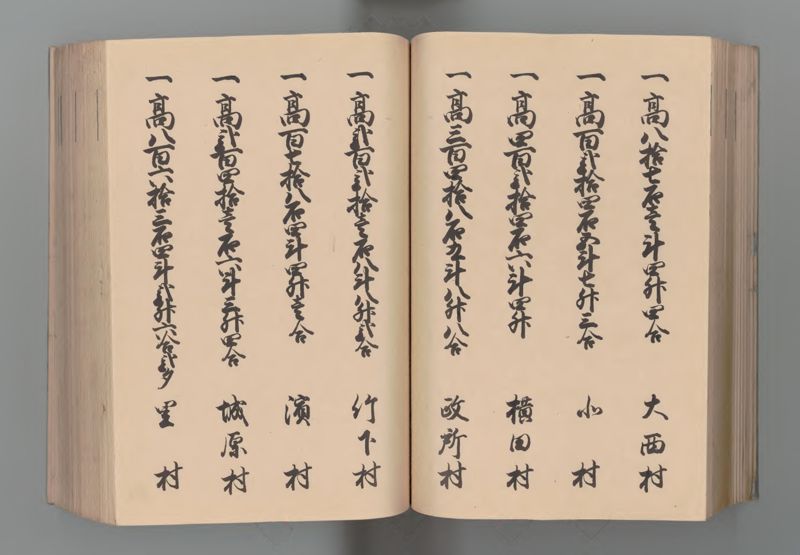 一高八拾七石壱斗四升四合 大西村
一高百弐拾四石五斗七升三合 小村
一高四百弐拾四石六斗四升 横田村
一高三百四拾八石五斗八升八合 政所村
一高弐百弐拾壱石八斗八升弐合 竹下村
一高百七拾八石四斗四升壱合 濱村
一高弐百四拾壱石六斗三升四合 城原村
一高八百六拾三石四斗弐升六合弐夕 里村